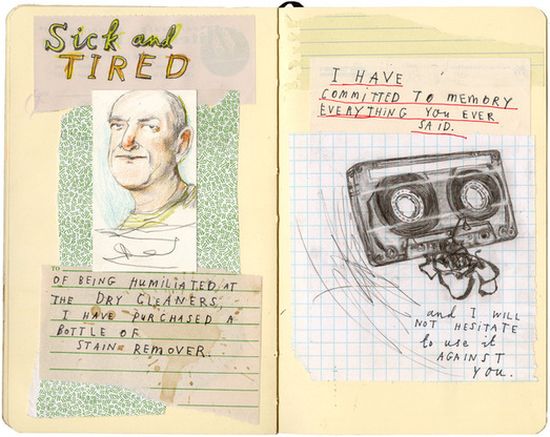 Sick and
TIRED
TO
OF BEING HUMILIATED AT
THE DRY CLEANERS,
I HAVE PURCHASED A
BOTTLE OF
STAIN REMOVER.
I HAVE
COMMITTED TO MEMORY
EVERYTHING YOU EVER
SAID.
and I WILL
NOT HESITATE
to use it
AGAINST
YOU.